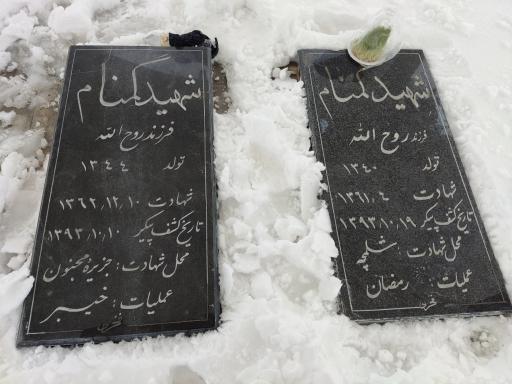 شهید گمنام
فرزند روح الله
تولد ۱۳۴۴
شهادت ۱۳۶۲،۱۲،۱۰
تاریخ کشف پیکر ۱۳۹۳،۱۰،۱۰
محل شهادت: جزیره مجنون
عملیات: خیبر
شهید گمنام
فرزند روح الله
تولد ۱۳۴۰
شهادت ۱۳۶۱،۴
تاریخ کشف پیکر ۱۳۹۳،۱۰،۱۹
محل شهادت: شلمچه
عملیات: رمضان